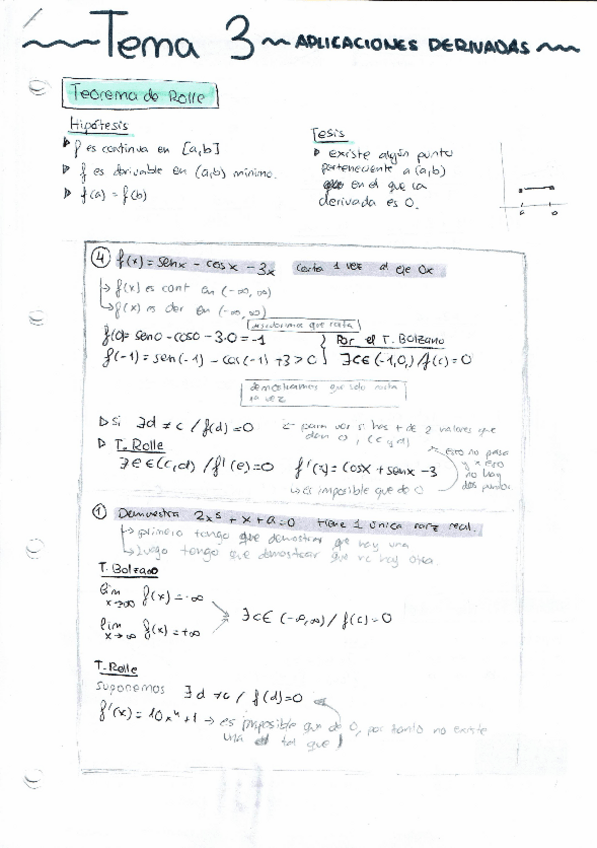 Tema 3 ~ APLICACIONES DERIVADAS
Teorema de Rolle
Hipótesis
f es continua en [a,b]
f es derivable en (a,b) mínimo.
f(a) = f(b)
Tesis
existe algún punto
perteneciente a (a,b)
en el que la
derivada es 0.
a b
④ f(x) = senx - cosx - 3x corta 1 vez al eje Ox
f(x) es cont en (-∞,∞)
f(x) es der en (-∞,∞)
que corta
f(0) = sen0 - cos0 - 3·0 = -1
f(-1) = sen(-1) - cos(-1) + 3 > 0
Por el T. Bolzano
∃c∈(-1,0) / f(c) = 0
demostramos que solo corta
1a vez
Si ∃d ≠ c / f(d) = 0
para ver si hay + de 2 valores que
den 0, (c y d)
T. Rolle
∃e∈(c,d) / f'(e) = 0 f'(x) = cosx + senx - 3
es imposible que de 0
esto no pasa
y x eso
no hay
dos puntos
① Demuestra 2x⁵ + x + a = 0 tiene 1 única raíz real.
primero tengo que demostrar que hay una
luego tengo que demostrar que no hay otra
T. Bolzano
lim f(x) = -∞
x→-∞
lim f(x) = +∞
x→∞
∃c∈(-∞,∞) / f(c) = 0
T. Rolle
suponemos ∃d ≠ c / f(d) = 0
f'(x) = 10x⁴ + 1 → es imposible que de 0, por tanto no existe
una d tal que